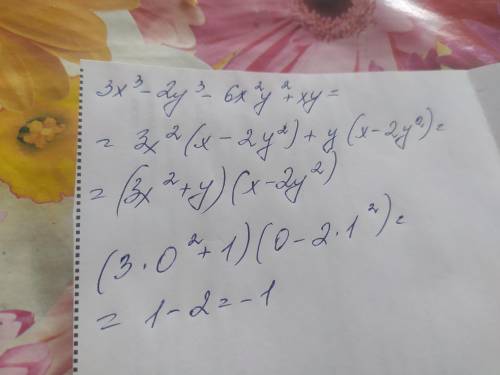 3x³-2y³-6x²y²+xy=
= 3x²(x-2y²)+y(x-2y²)=
=(3x²+y)(x-2y²)
(3·0²+1)(0-2·1²)=
= 1-2=-1